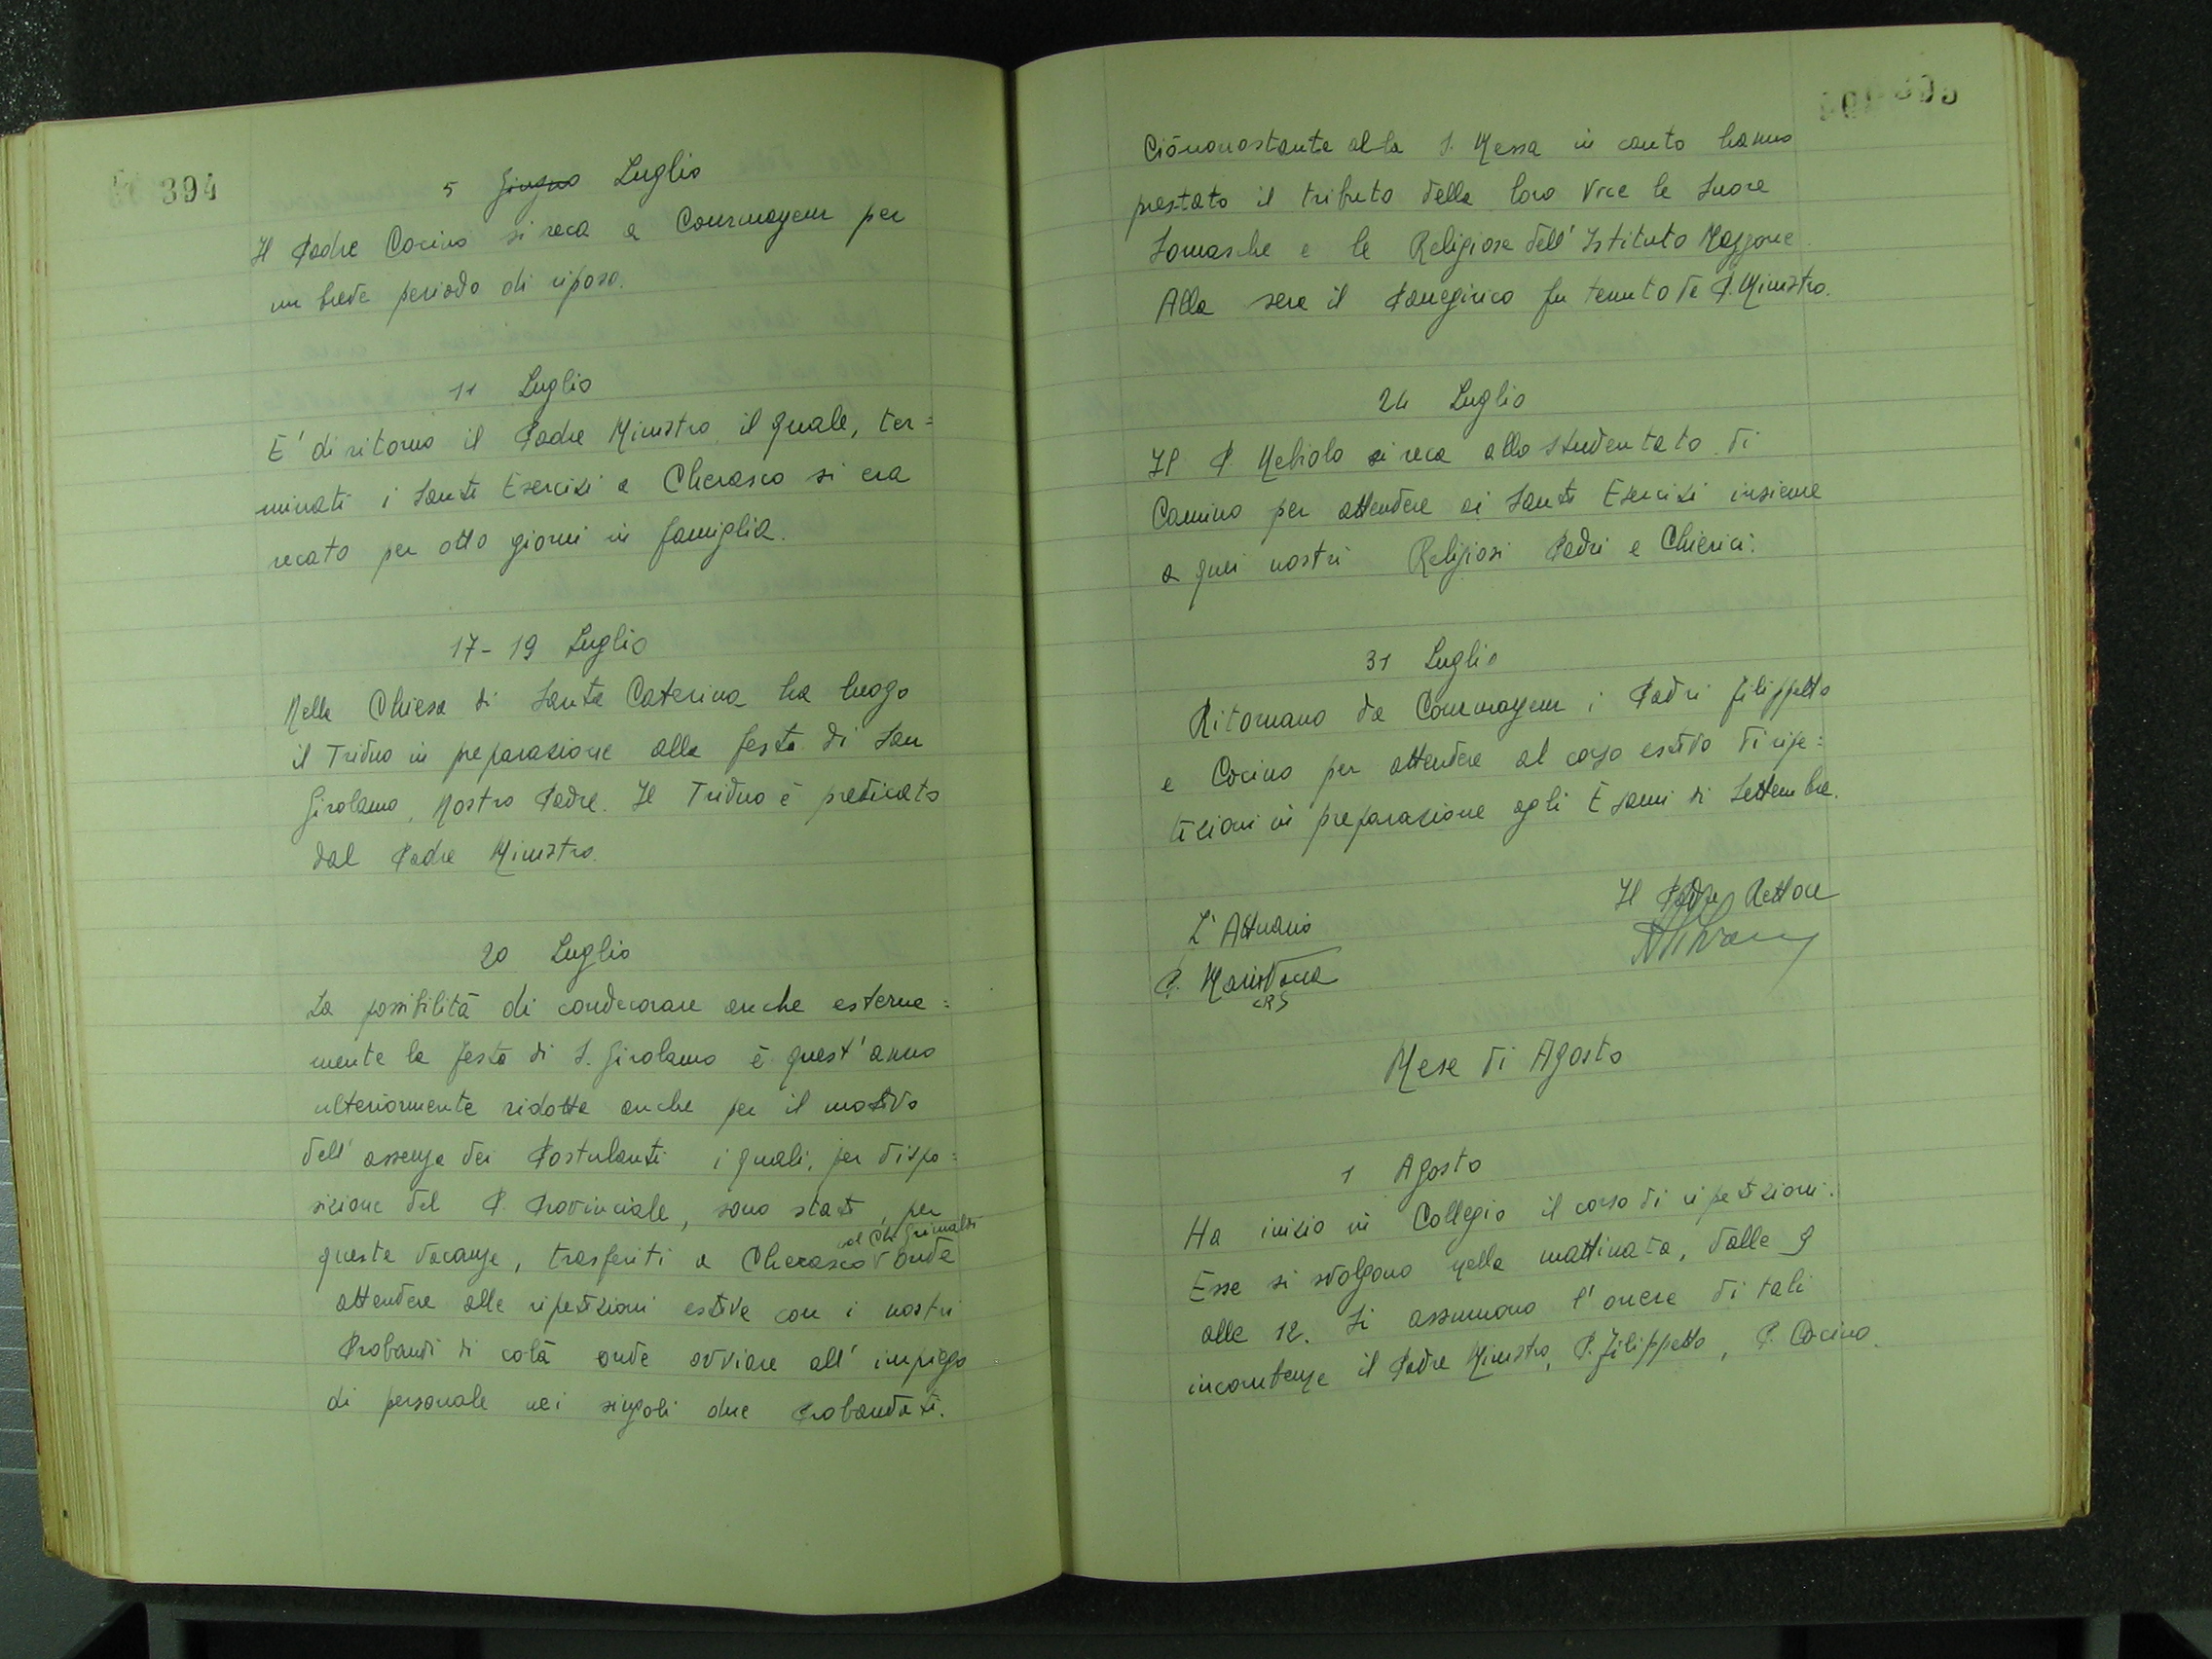 394
5 Giugno Luglio
Il Padre Cocino si reca a Courmayeur per
un breve periodo di riposo.
11 Luglio
E' di ritorno il Padre Ministro il quale, ter=
minati i Santi Esercizi a Cherasco si era
recato per otto giorni in famiglia.
17-19 Luglio
Nella Chiesa di Santa Caterina ha luogo
il Triduo in preparazione alla festa di San
Girolamo, Nostro Padre. Il Triduo è predicato
dal Padre Ministro.
20 Luglio
La possibilità di condecorare anche esterna=
mente la festa di S. Girolamo è quest'anno
ulteriormente ridotta anche per il motivo
dell'assenza dei Postulanti i quali, per dispo=
sizione del P. Provinciale, sono stati, per
queste vacanze, trasferiti a Cherasco col Ch. Grimaldi onde
attendere alle ripetizioni estive con i nostri
Probandi di colà onde ovviare all'impiego
di personale nei singoli due Probandati.
Ciònonostante alla S. Messa in canto hanno
prestato il tributo della loro voce le Suore
Somasche e le Religiose dell'Istituto Mazzone.
Alla sera il Panegirico fu tenuto da P. Ministro.
24 Luglio
Il P. Mebiolo si reca allo studentato di
Camino per attendere ai Santi Esercizi insieme
a quei nostri Religiosi Padri e Chierici.
31 Luglio
Ritornano da Courmayeur i Padri Filippetto
e Cocino per attendere al corso estivo di ripe=
tizioni in preparazione agli Esami di Settembre.
Il Padre Rettore
L'Attuario
P. Mario Vacca
CRS
Mese di Agosto
1 Agosto
Ha inizio in Collegio il corso di ripetizioni.
Esse si svolgono nella mattinata, dalle 9
alle 12. Si assumono l'onere di tali
incombenze il Padre Ministro, P. Filippetto, P. Cocino.